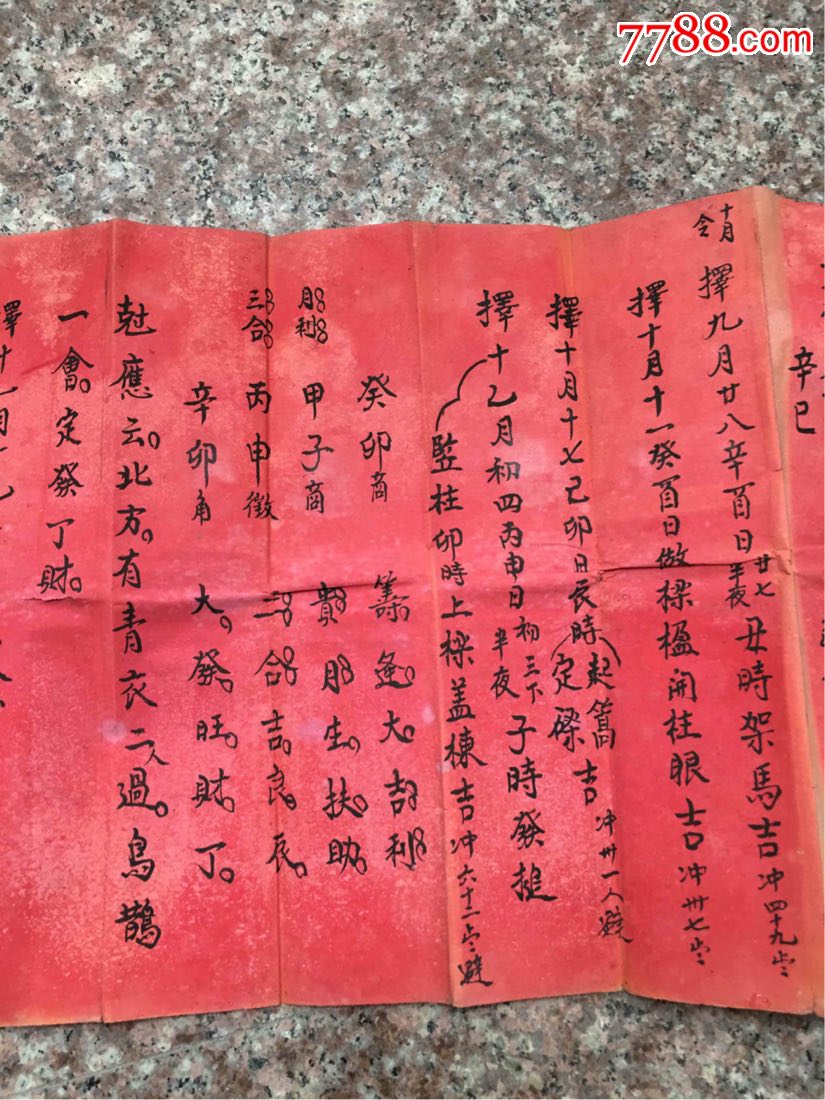 7788.com
辛巳
十月令
擇九月廿八辛酉日廿七半夜丑時架馬吉冲四十九岁
擇十月十一癸酉日做樑楹開柱眼吉冲卅七岁
擇十月十七己卯日辰時起篙定磉吉冲卅一人避
擇十乙月初四丙申日初三下半夜子時發搥
竖柱卯時上樑盖棟吉冲六十二岁避
癸卯商 籌逢大吉利
月利 甲子商 貴月生扶助
三合 丙申徵 三合吉良辰
辛卯角 大發旺財丁
尅應云北方有青衣二人過鳥鵲
一會定發丁財
擇十